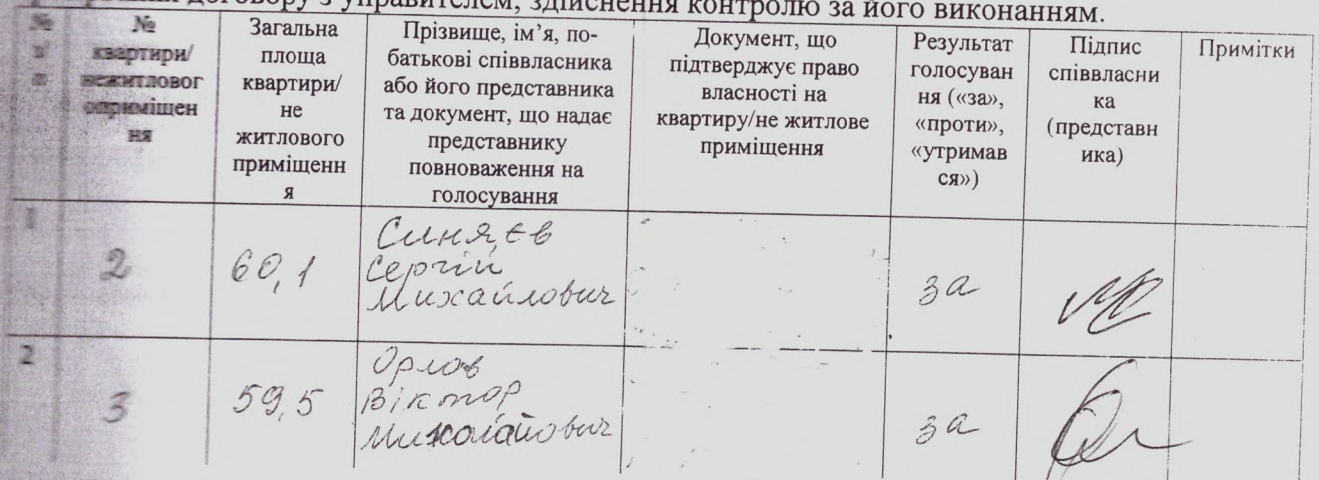 договору з управителем, здійснення контролю за його виконанням.
№ з/п
№ квартири/ нежитловог оприміщен ня
Загальна площа квартири/ не житлового приміщенн я
Прізвище, ім’я, по-батькові співвласника або його представника та документ, що надає представнику повноваження на голосування
Документ, що підтверджує право власності на квартиру/не житлове приміщення
Результат голосуван ня («за», «проти», «утримав ся»)
Підпис співвласни ка (представн ика)
Примітки
1
2
60,1
Синяєв
Сергій
Михайлович
за
2
3
59,5
Орлов
Віктор
за